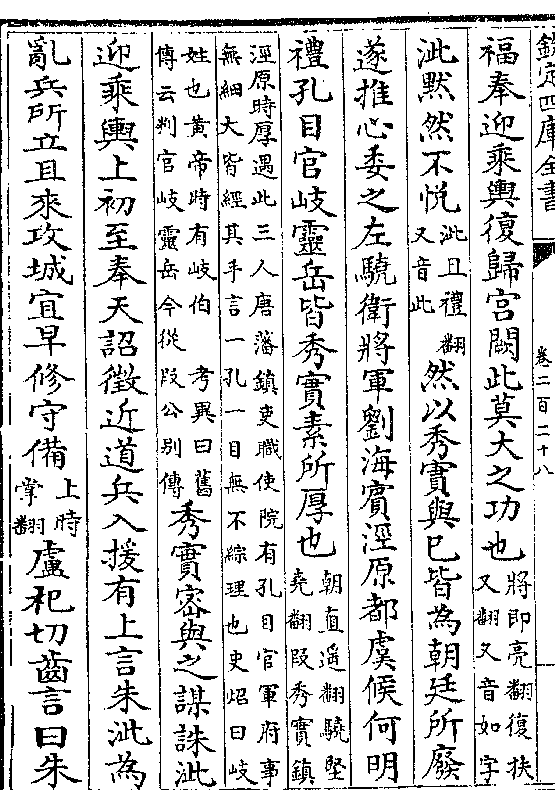 欽定四庫全書
卷二百二十八
福奉迎乘輿復歸宮闕此莫大之功也將即亮翻復扶又翻又音如字
泚黙然不悦泚且禮翻又音此然以秀實與已皆為朝廷所廢
遂推心委之左驍衛將軍劉海賓涇原都虞候何明
禮孔目官岐靈岳皆秀實素所厚也朝直遥翻驍堅堯翻叚秀實鎮
涇原時厚遇此三人唐藩鎮吏職使院有孔目官軍府事無細大皆經其手言一孔一目無不綜理也史炤曰岐
姓也黄帝時有岐伯考異曰舊傳云判官岐靈岳今從叚公别傳秀實密與之謀誅泚
迎乘輿上初至奉天詔徵近道兵入援有上言朱泚為
亂兵所立且來攻城宜早修守備上時掌翻盧杞切齒言曰朱